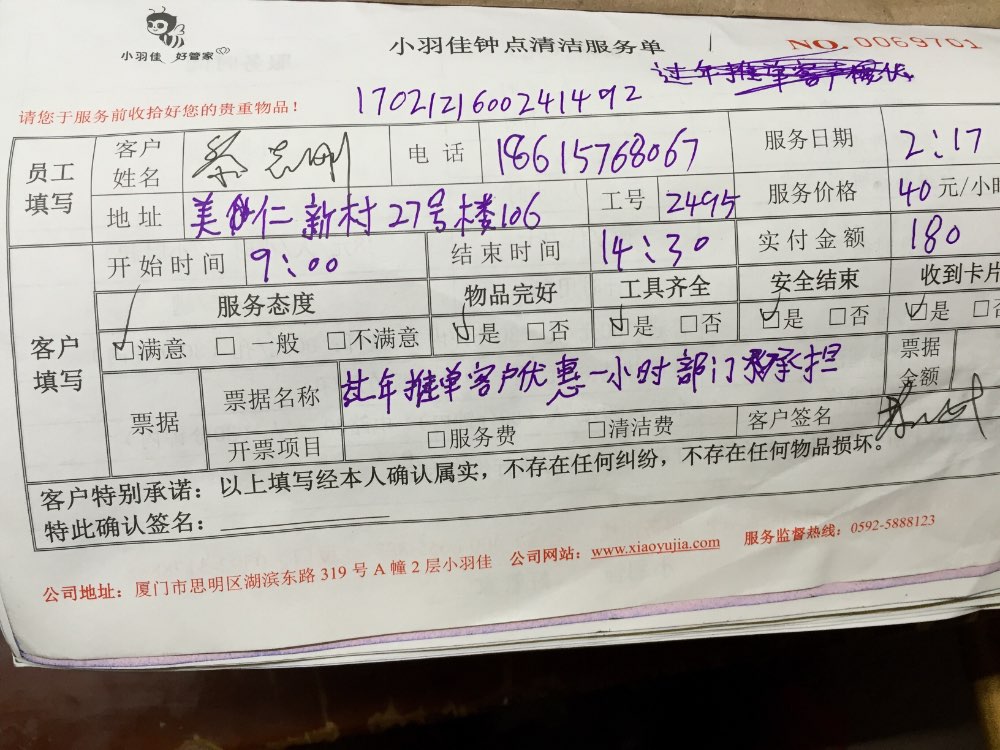 小羽佳 好管家
小羽佳钟点清洁服务单
NO. 0069701
过年推单客户
请您于服务前收拾好您的贵重物品！
17021216002414192
员工填写
客户姓名 蔡志刚 电 话 18615768067 服务日期 2:17
地 址 美仁新村27号楼106 工号 2495 服务价格 40 元/小时
客户填写
开始时间 9:00 结束时间 14:30 实付金额 180
服务态度 物品完好 工具齐全 安全结束 收到卡片
☑满意 □ 一般 □不满意 ☑是 □否 ☑是 □否 ☑是 □否 ☑是 □否
票据 票据名称 过年推单客户优惠一小时部门承担 票据金额
开票项目 □服务费 □清洁费 客户签名
客户特别承诺：以上填写经本人确认属实，不存在任何纠纷，不存在任何物品损坏。
特此确认签名：
公司地址：厦门市思明区湖滨东路 319 号 A 幢 2 层小羽佳 公司网站：www.xiaoyujia.com 服务监督热线：0592-5888123